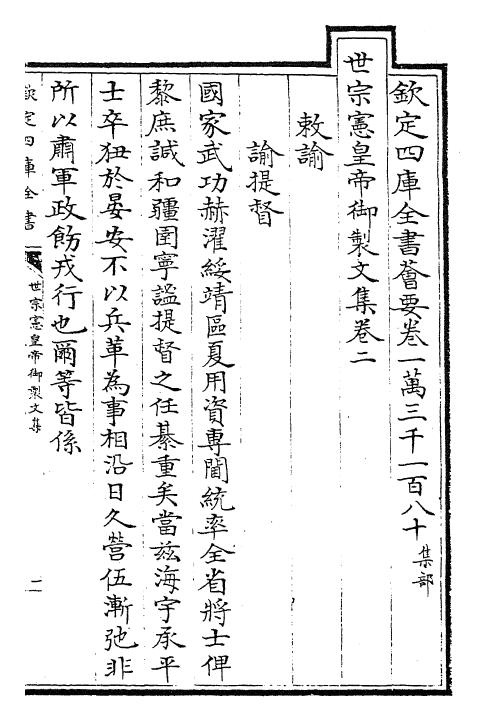 欽定四庫全書薈要卷一萬三千一百八十集部
世宗憲皇帝御製文集卷二
敕諭
諭提督
國家武功赫濯綏靖區夏用資專閫統率全省將士俾
黎庶諴和疆圉寧謐提督之任綦重矣當兹海宇承平
士卒狃於晏安不以兵革為事相沿日久營伍漸弛非
所以肅軍政飭戎行也爾等皆係
欽定四庫全書
世宗憲皇帝御製文集
二